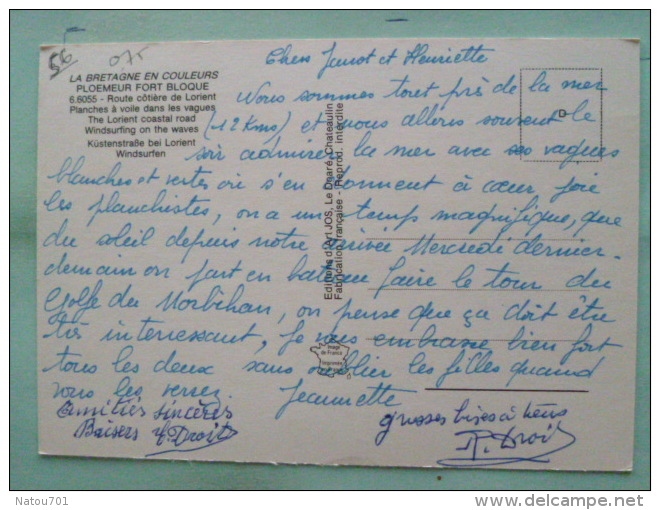 56
0,75
LA BRETAGNE EN COULEURS
PLOEMEUR FORT BLOQUE
6.6055 - Route côtière de Lorient
Planches à voile dans les vagues
The Lorient coastal road
Windsurfing on the waves
Küstenstraße bei Lorient
Windsurfen
Editions d'Art JOS, Le Doaré, Chateaulin
Fabrication Française - Reprod. interdite
D
Image de France
Chers Janot et Henriette
Nous sommes tout près de la mer
(12 Kms) et nous allons souvent le
soir admirer la mer avec ses vagues
blanches et vertes où s'en donnent à cœur joie
les planchistes, on a un temps magnifique, que
du soleil depuis notre arrivée Mercredi dernier.
demain on part en bateau faire le tour du
Golfe du Morbihan, on pense que ça doit être
très interressant, Je vous embrasse bien fort
tous les deux sans oublier les filles quand
vous les verrez. Jeannette
Amitiés sincères
Baisers Y Droit
grosses bises à tous
R. Droit
Natou701
www.delcampe.net